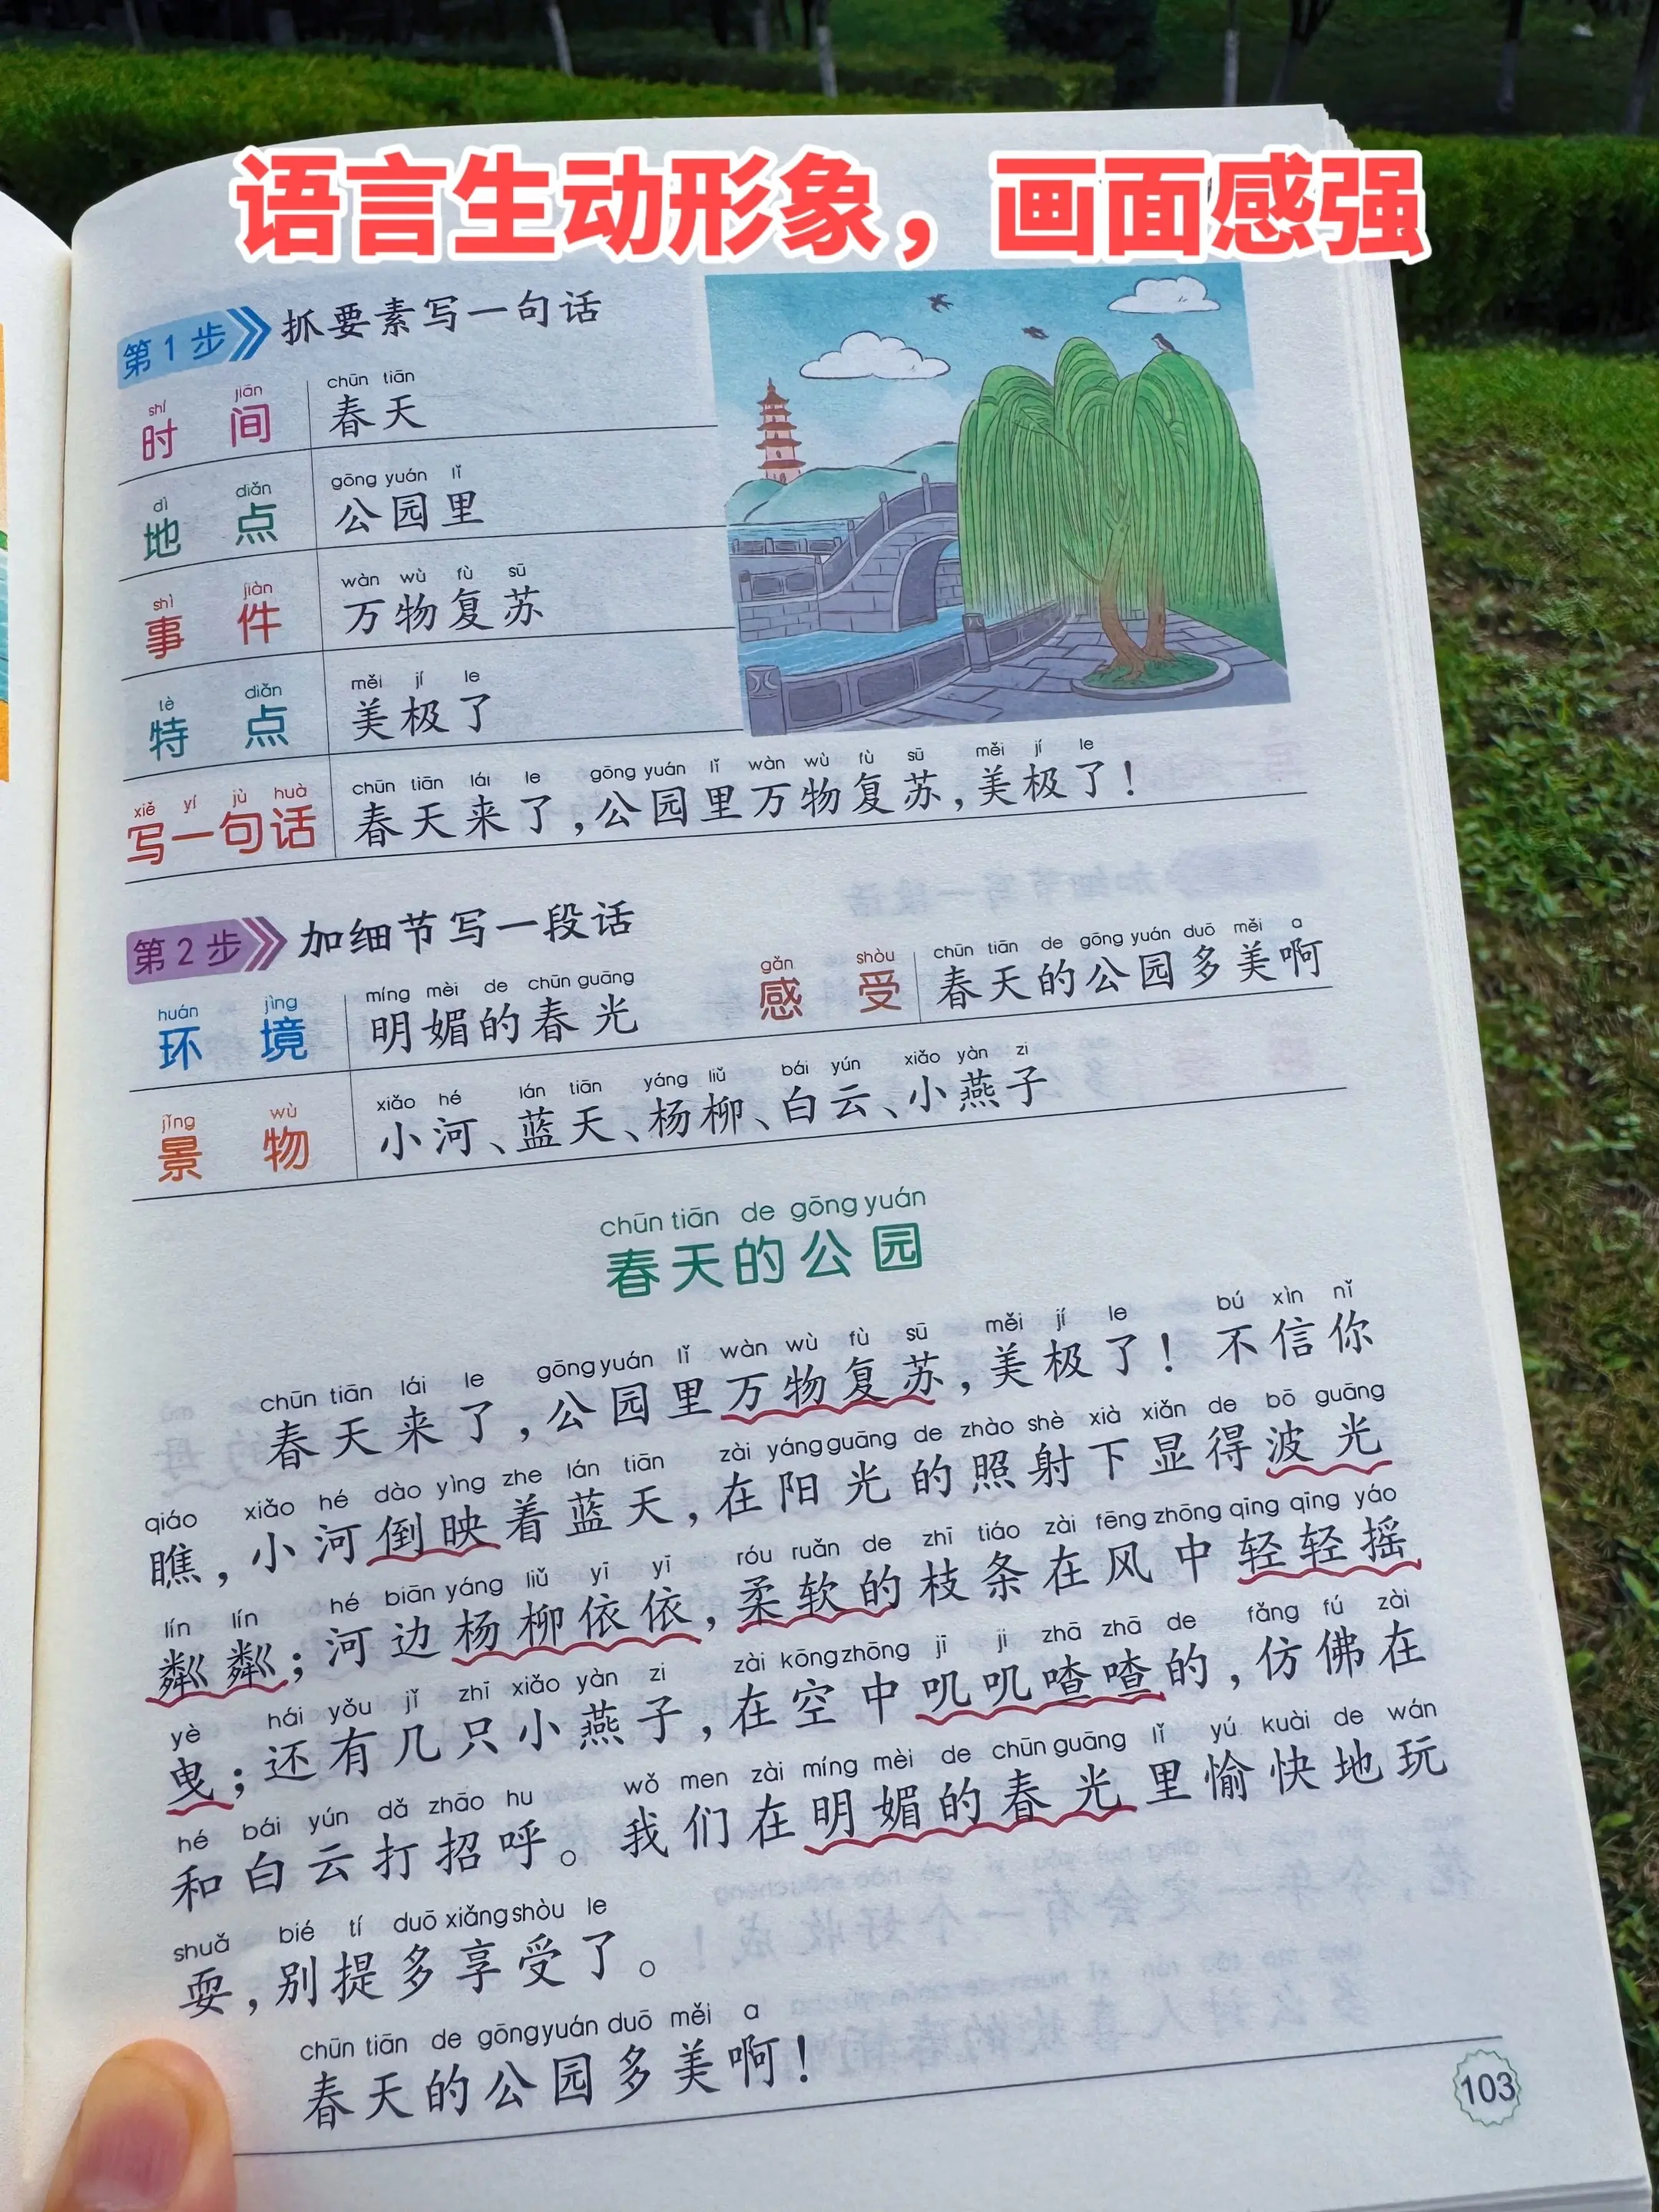 语言生动形象，画面感强
第1步 抓要素写一句话
shí jiān chūn tiān
时间 春天
dì diǎn gōng yuán lǐ
地点 公园里
shì jiàn wàn wù fù sū
事件 万物复苏
tè diǎn měi jí le
特点 美极了
xiě yí jù huà chūn tiān lái le gōng yuán lǐ wàn wù fù sū měi jí le
写一句话 春天来了，公园里万物复苏，美极了！
第2步 加细节写一段话
huán jìng míng mèi de chūn guāng gǎn shòu chūn tiān de gōng yuán duō měi a
环境 明媚的春光 感受 春天的公园多美啊
jǐng wù xiǎo hé lán tiān yáng liǔ bái yún xiǎo yàn zi
景物 小河、蓝天、杨柳、白云、小燕子
chūn tiān de gōng yuán
春天的公园
chūn tiān lái le gōng yuán lǐ wàn wù fù sū měi jí le bú xìn nǐ
春天来了，公园里万物复苏，美极了！不信你
qiáo xiǎo hé dào yìng zhe lán tiān zài yáng guāng de zhào shè xià xiǎn de bō guāng
瞧，小河倒映着蓝天，在阳光的照射下显得波光
lín lín hé biān yáng liǔ yī yī róu ruǎn de zhī tiáo zài fēng zhōng qīng qīng yáo
粼粼；河边杨柳依依，柔软的枝条在风中轻轻摇
yè hái yǒu jǐ zhī xiǎo yàn zi zài kōng zhōng jī ji zhā zhā de fǎng fú zài
曳；还有几只小燕子，在空中叽叽喳喳的，仿佛在
hé bái yún dǎ zhāo hu wǒ men zài míng mèi de chūn guāng lǐ yú kuài de wán
和白云打招呼。我们在明媚的春光里愉快地玩
shuǎ bié tí duō xiǎng shòu le
耍，别提多享受了。
chūn tiān de gōng yuán duō měi a
春天的公园多美啊！
103